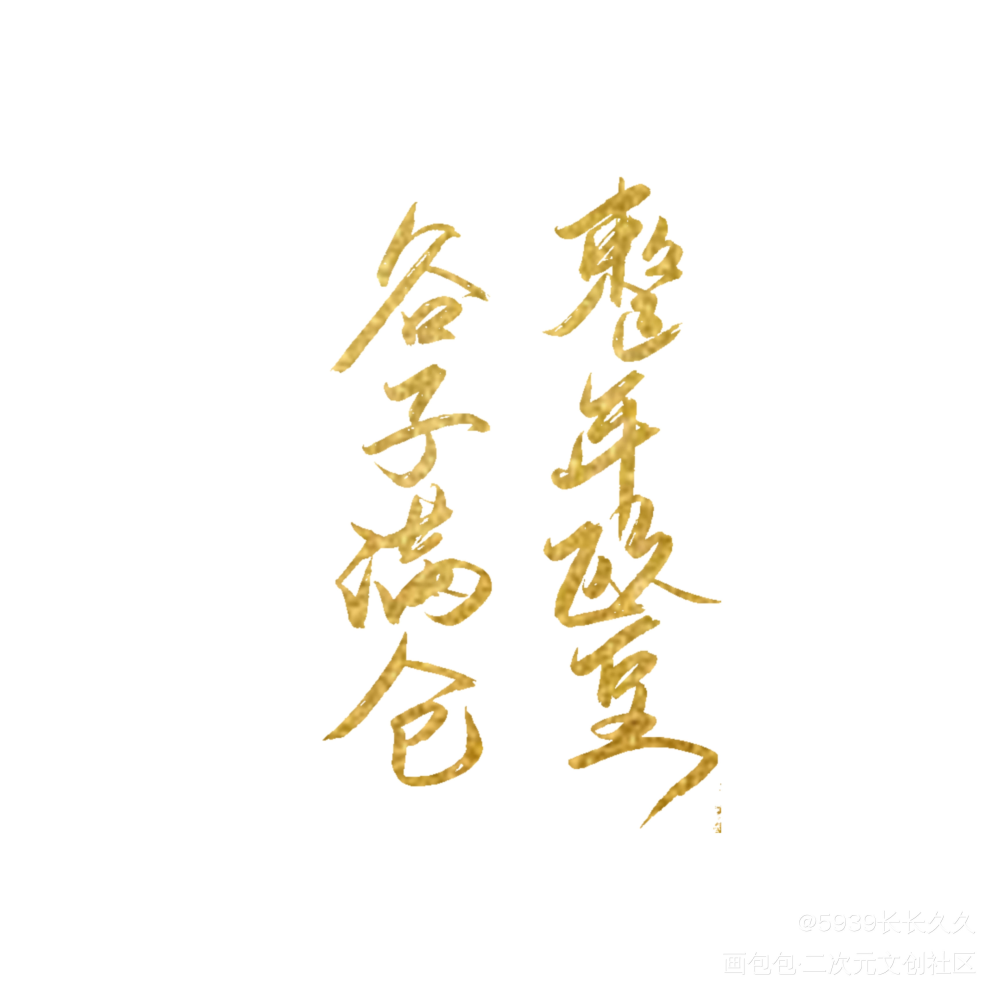 整年欧皇
谷子满仓
@5939长长久久
画包包·二次元文创社区